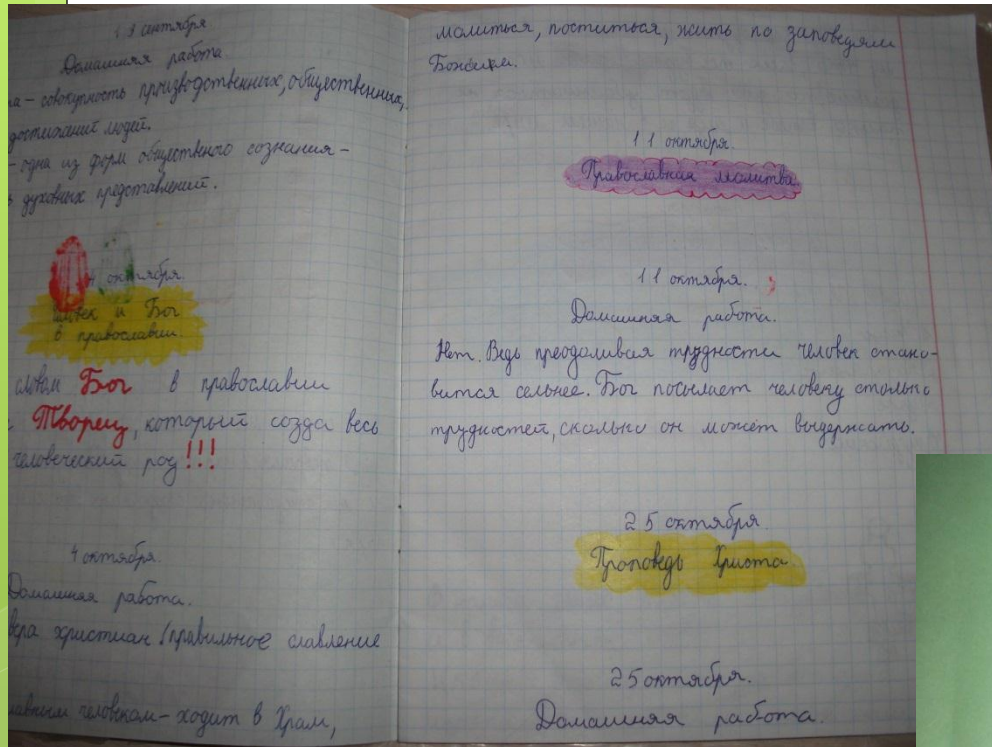 сентября
Домашняя работа
– совокупность производственных, общественных,
достижений людей.
– одна из форм общественого сознания –
духовных представлений.
октября.
век и Бог
в православии.
словом Бог в православии
Творец, который созда весь
человеческий род!!!
4 октября.
Домашняя работа.
вера христиан! правильное славление
человеком – ходит в Храм,
молиться, поститься, жить по заповедям
Божьим.
11 октября.
Православная молитва
11 октября.
Домашняя работа.
Нет. Ведь преодоливая трудности человек стано-
вится сельнее. Бог посылает человеку столько
трудностей, сколько он может выдержать.
25 октября.
Проповедь Христа.
25 октября.
Домашняя работа.